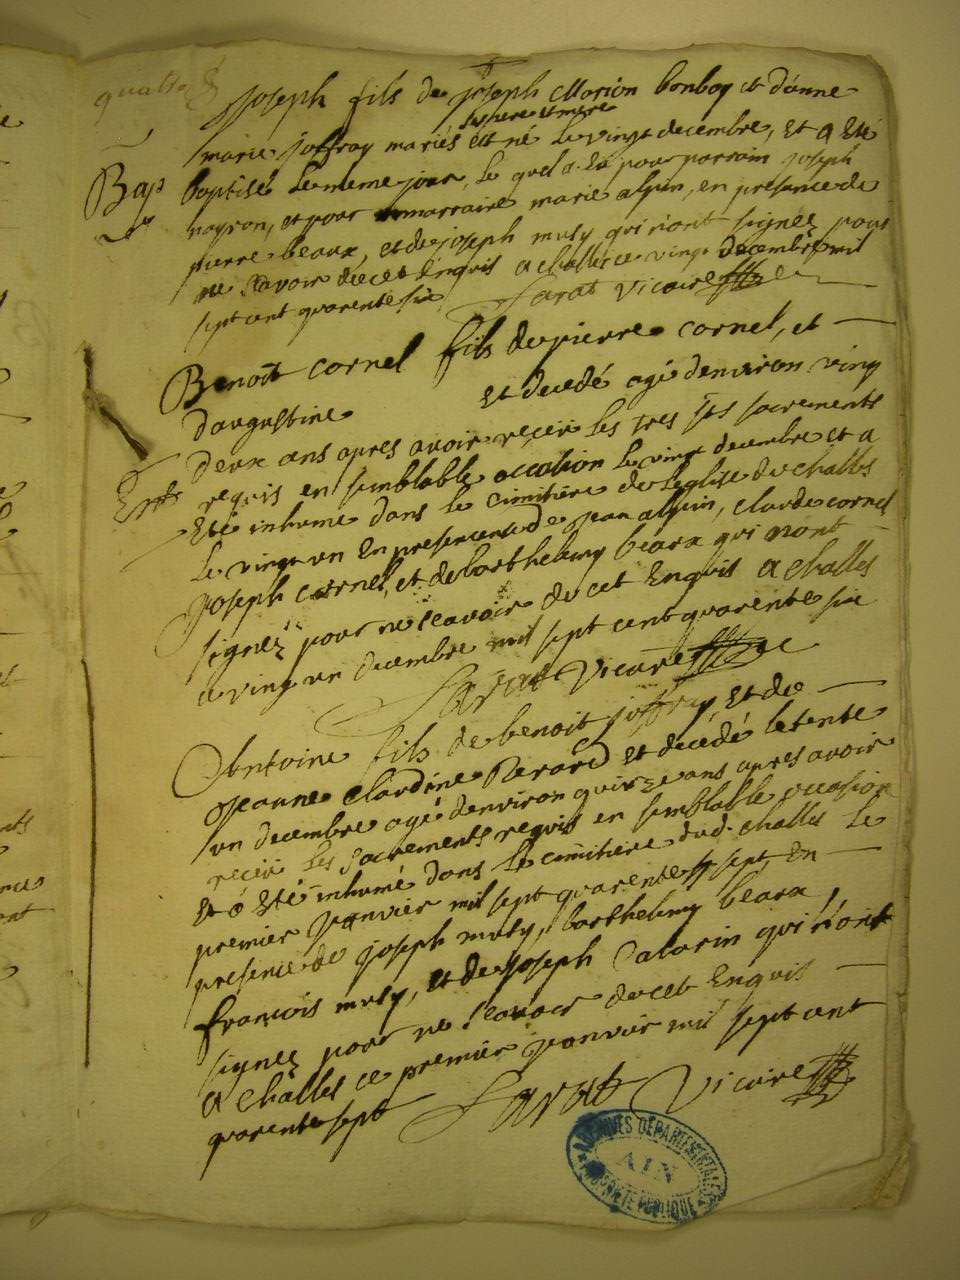 quatre
Joseph fils de joseph Marion bonboy et d'anne
ses pere et mere
marie joffray mariés est né le vingt decembre, et a eté
Bap
baptisé le meme jour, le quel a eu pour parrain joseph
nayron, et pour marraine marie alpin, en presence de
pierre beaux, et de joseph musy qui n'ont signez pour
ne scavoir de ce enquis a challes ce vingt decembre mil
sept cent quarente six Sarat vicaire
Benoît cornel fils de pierre cornel, et
d'augustine est decedé agé d'environ vingt
deux ans apres avoir reçeu les tres sts sacrements
Ent
requis en semblable occasion le vingt decembre et a
eté inhumé dans le cimitiere de l'eglise de challes
le vingt un en presence de jean alpin, claude cornel
joseph cornel, et de barthelemy beaux qui n'ont
signez pour ne scavoir de cet enquis a challes
ce vingt un decembre mil sept cent quarente six
Sarat Vicaire
Antoine fils de benoit joffray, et de
jeanne claudine Rerard est decedé le tente
un decembre agé d'environ quinze ans apres avoir
reçeu les sacrements requis en semblable occasion
et a eté inhumé dans le cimitiere dud. challes le
premier janvier mil sept quarente sept en
presence de joseph musy, barthelemy beaux,
françois musy, et de joseph Catarin qui n'ont
signez pour ne scavoir de cet enquis
a challes ce premier janvier mil sept cent
quarente sept Sarat Vicaire
ARCHIVES DÉPARTEMENTALES
AIN
PROPRIÉTÉ PUBLIQUE